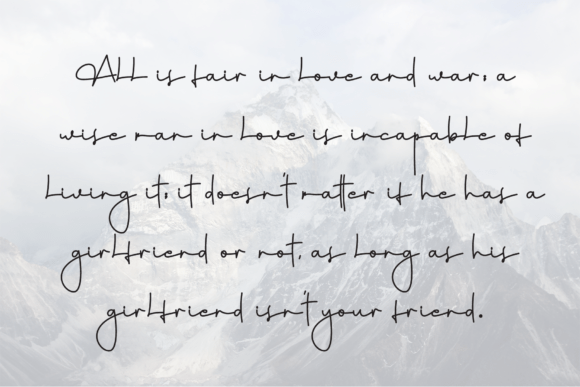 All is fair in love and war; a
wise man in love is incapable of
living it; it doesn't matter if he has a
girlfriend or not, as long as his
girlfriend isn't your friend.